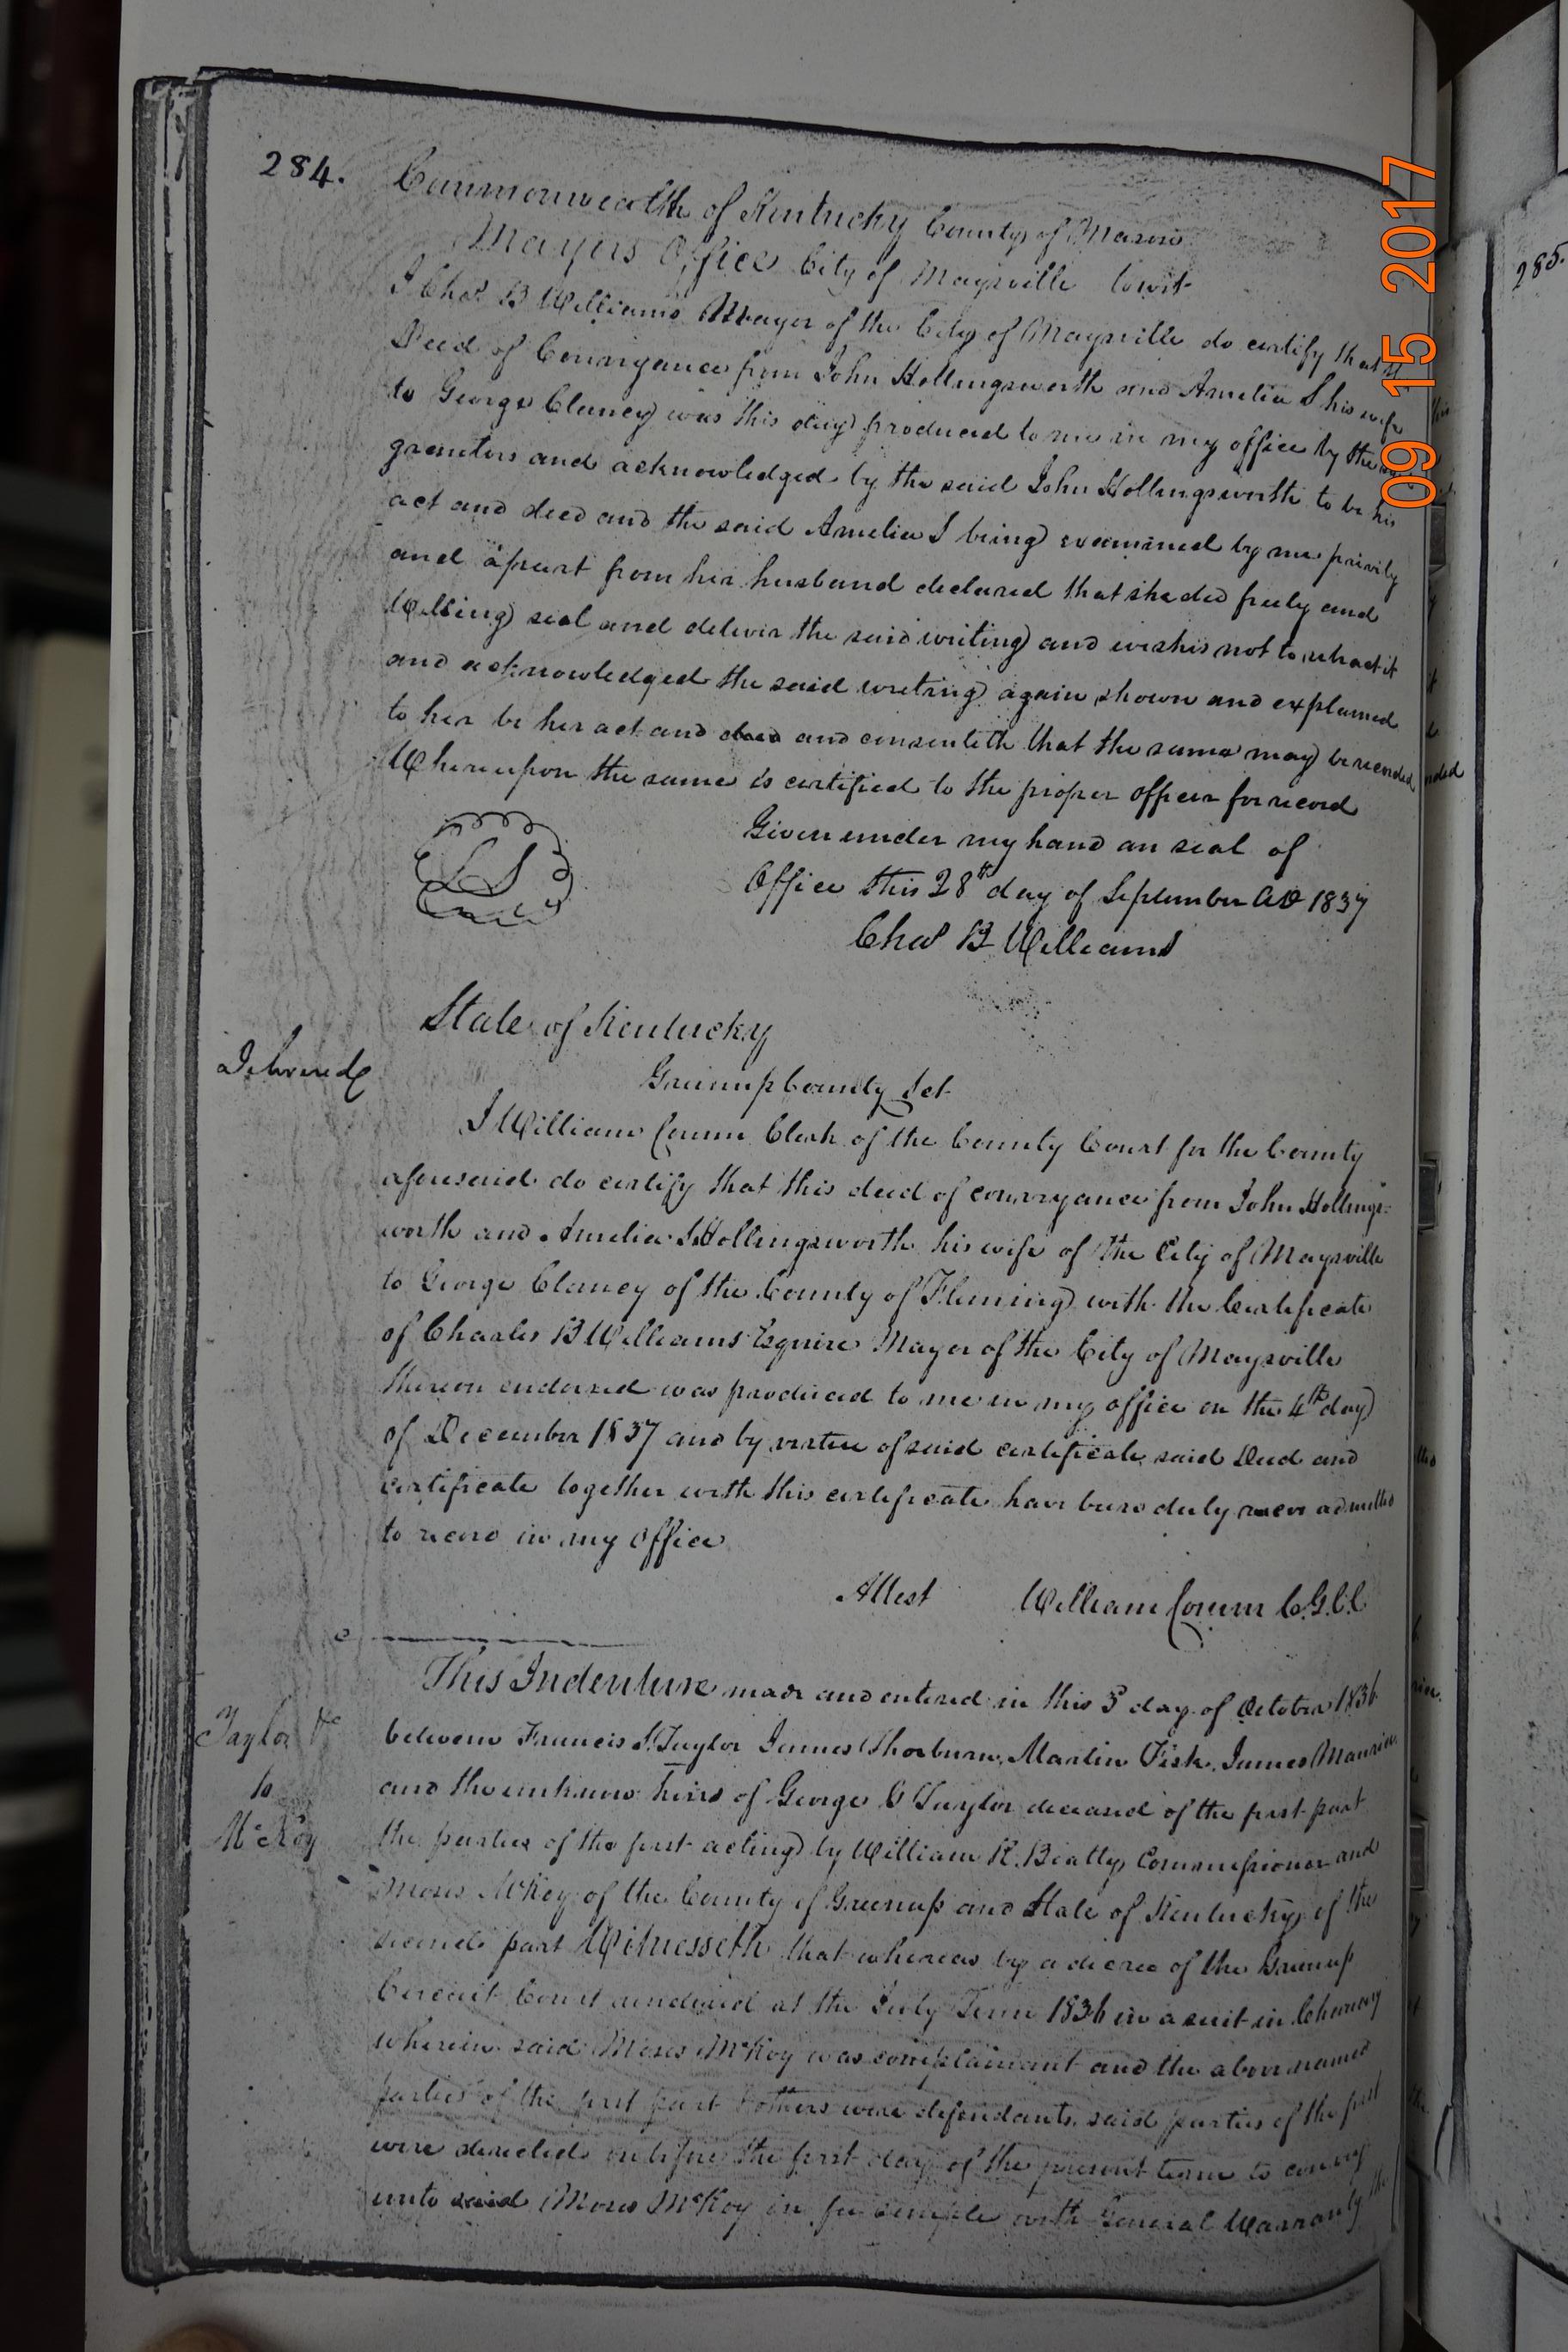 284.
Commonwealth of Kentucky County of Mason
Mayors Office City of Maysville towit
I Chas B Williams Mayor of the City of Maysville do certify that
Deed of Conveyance from John Hollingsworth and Amelia S his wife
to George Clancy was this day produced to me in my office by the
grantors and acknowledged by the said John Hollingsworth to be his
act and deed and the said Amelia S being examined by me privily
and apart from her husband declared that she did freely and
Willing seal and deliver the said writing and wishes not to retract it
and acknowledged the said writing again shown and explained
to her be her act and deed and consenteth that the same may be recorded
Whereupon the same is certified to the proper officer for record
Given under my hand an seal of
Office this 28th day of September AD 1837
L S
Chas B Williams
State of Kentucky
Delivered
Greenup County Sct
I William Corum Clerk of the County Court for the County
aforesaid do certify that this deed of conveyance from John Hollings-
worth and Amelia S Hollingsworth his wife of the City of Maysville
to George Clancy of the County of Fleming with the Certificate
of Charles B Williams Esquire Mayor of the City of Maysville
thereon endorsed was produced to me in my office on the 4th day
of December 1837 and by virtue of said certificate said Deed and
certificate together with this certificate have been duly admitted
to record in my Office
Attest William Corum C.G.C.C
This Indenture made and entered in this 3d day of October 1836
Taylor &c
to
McKoy
between Francis S. Taylor James Thorburn, Martin Fisk, James
and the unknown heirs of George C Taylor deceased of the first part
the parties of the first acting by William R. Beatty Commissioner and
Moses McKoy of the County of Greenup and State of Kentucky of the
second part Witnesseth that whereas by a decree of the Greenup
Circuit Court rendered at the July Term 1836 in a suit in Chancery
wherein said Moses McKoy was complainant and the above named
parties of the first part & others were defendants, said parties of the first
were directed on before the first day of the present term to convey
unto said Moses McKoy in fee simple with General Warranty the
285.
09 15 2017